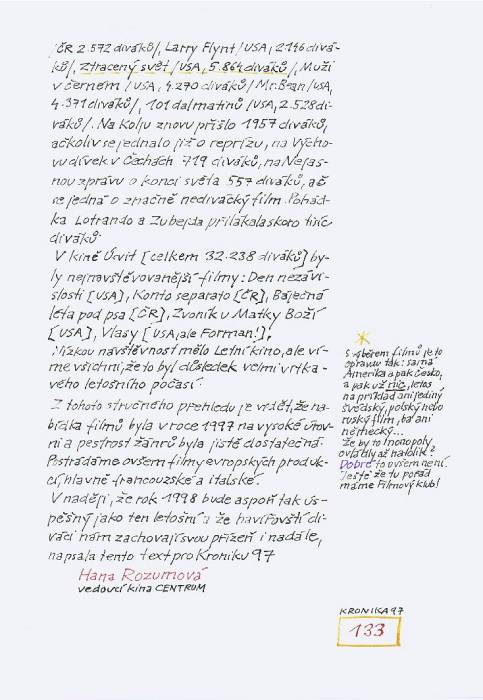 /ČR 2.572 diváků/, Larry Flynt /USA, 2146 divá-
ků/, Ztracený svět /USA, 5.864 diváků/, Muži
v černém /USA, 4.270 diváků/ Mr.Bean /USA,
4.371 diváků/, 101 dalmatinů /USA, 2.528 di-
váků/. Na Kolju znovu přišlo 1957 diváků,
ačkoliv se jednalo již o reprízu, na Výcho-
vu dívek v Čechách 719 diváků, na Nejas-
nou zprávu o konci světa 557 diváků, ač
se jedná o značně nedivácký film. Pohád-
ka Lotrando a Zubejda přilákala skoro tisíc
diváků.
V kině Úsvit [celkem 32.238 diváků] by-
ly nejnavštěvovanější filmy: Den nezávi-
slosti [USA], Konto separato [ČR], Báječná
léta pod psa [ČR], Zvoník u Matky Boží
[USA], Vlasy [USA, ale Forman!].
Nízkou návštěvnost mělo Letní kino, ale ví-
me všichni, že to byl důsledek velmi vrtka-
vého letošního počasí.
Z tohoto stručného přehledu je vidět, že na-
bídka filmů byla v roce 1997 na vysoké úrov-
ni a pestrost žánrů byla jistě dostatečná.
Postrádáme ovšem filmy evropských produk-
cí, hlavně francouzské a italské.
V naději, že rok 1998 bude aspoň tak ús-
pěšný jako ten letošní a že havířovští di-
váci nám zachovají svou přízeň i nadále,
napsala tento text pro Kroniku 97
Hana Rozumová
vedoucí kina CENTRUM
*
S výběrem filmů je to
opravdu tak: samá
Amerika a pak Česko,
a pak už nic, letos
na příklad ani jediný
švédský, polský nebo
ruský film, ba ani
německý...
Že by to monopoly
ovládly až natolik?
Dobré to ovšem není.
Ještě že tu pořád
máme Filmový klub!
KRONIKA 97
133